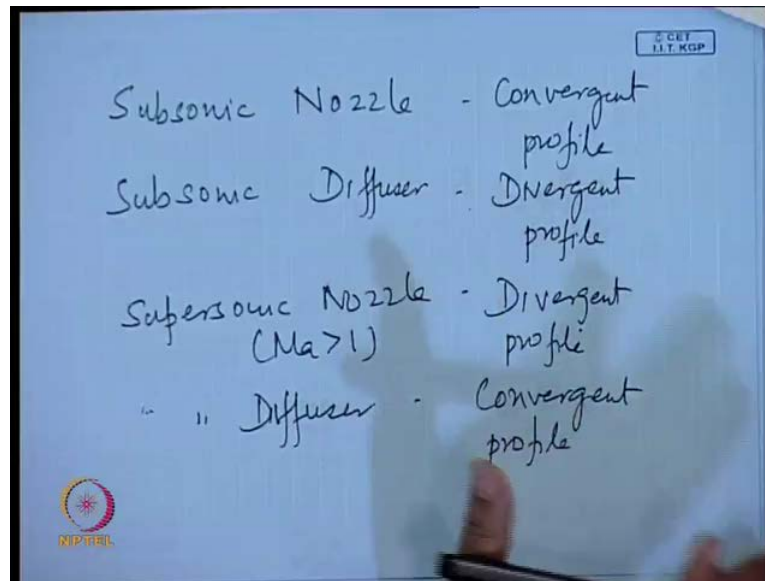 © CET
I.I.T. KGP
Subsonic Nozzle - Convergent
profile
Subsonic Diffuser - Divergent
profile
Supersonic Nozzle - Divergent
(Ma>1) profile
" " Diffuser - Convergent
profile
NPTEL